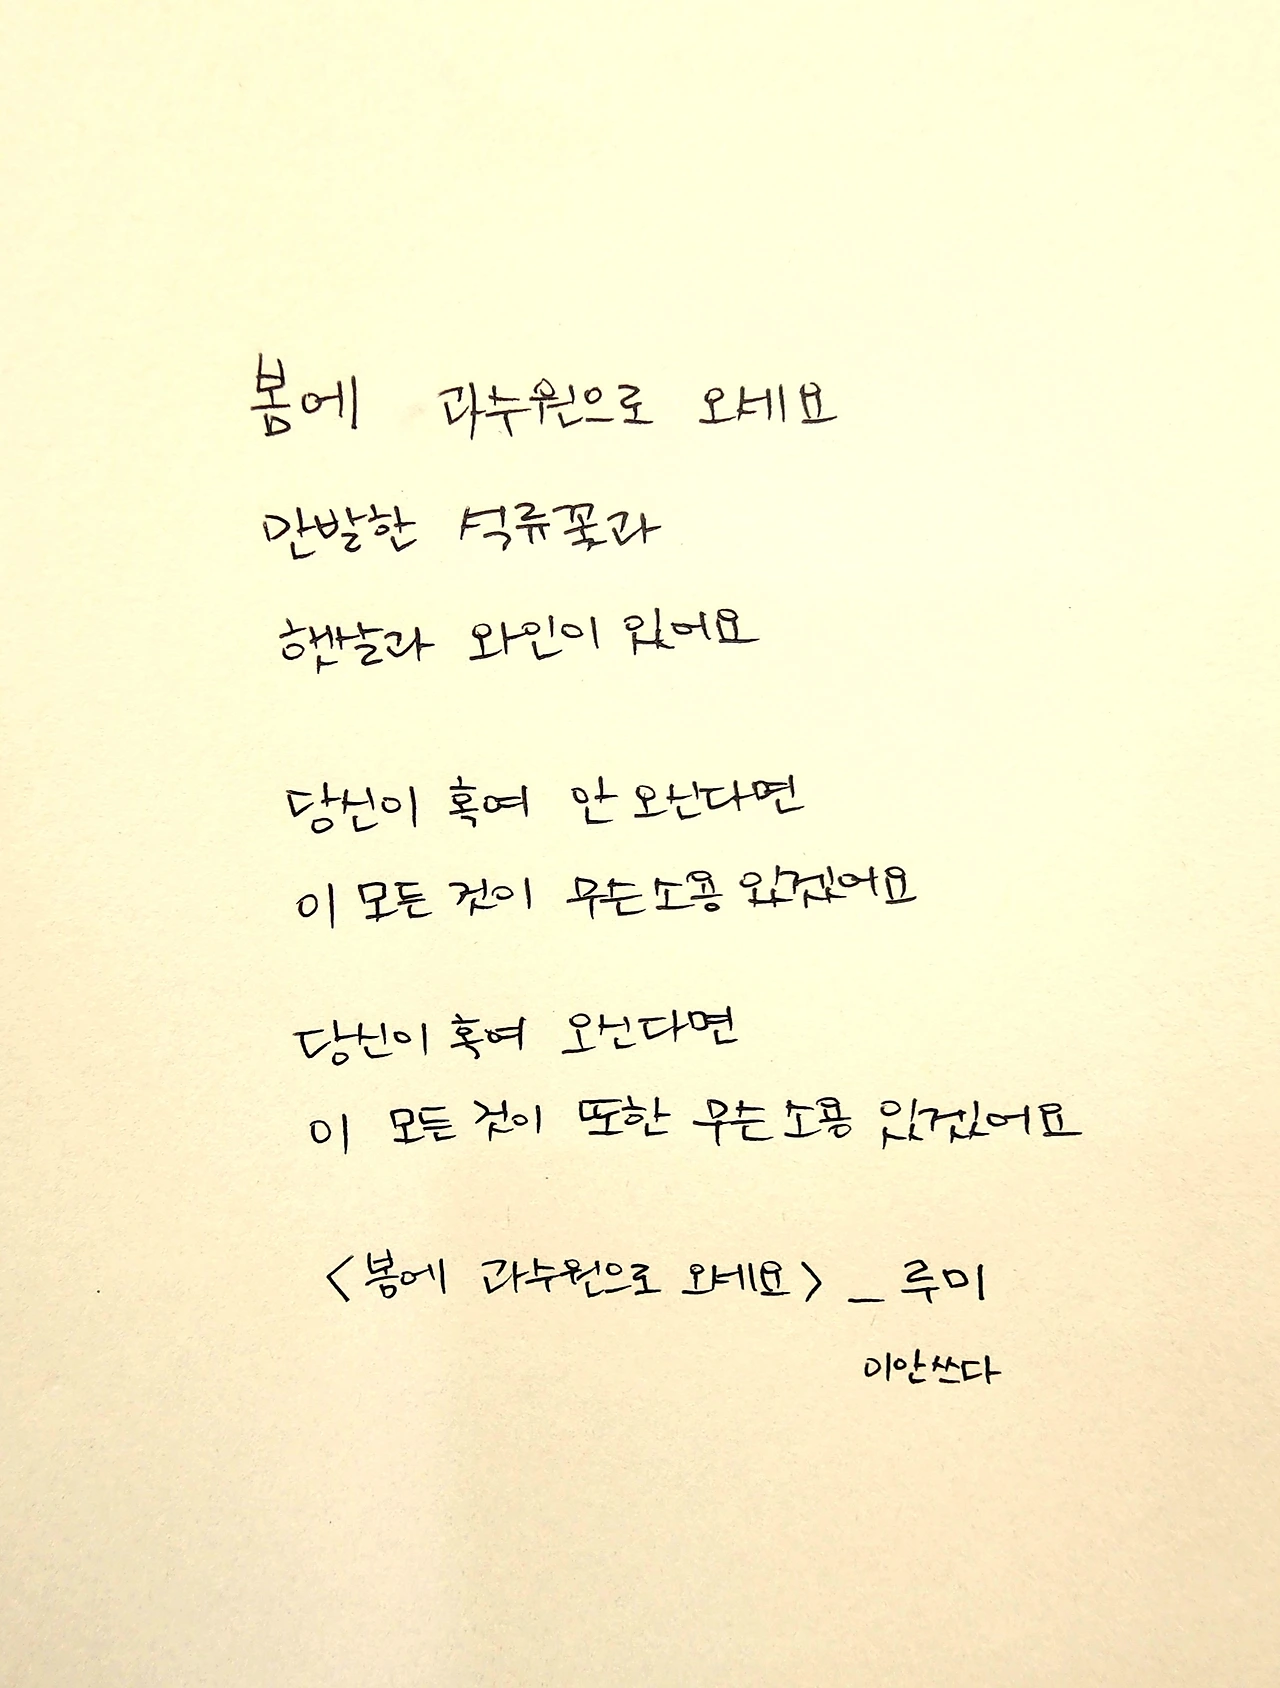 봄에 과수원으로 오세요
만발한 석류꽃과
햇살과 와인이 있어요
당신이 혹여 안 오신다면
이 모든 것이 무슨 소용 있겠어요
당신이 혹여 오신다면
이 모든 것이 또한 무슨 소용 있겠어요
<봄에 과수원으로 오세요> _ 루미
이안쓰다